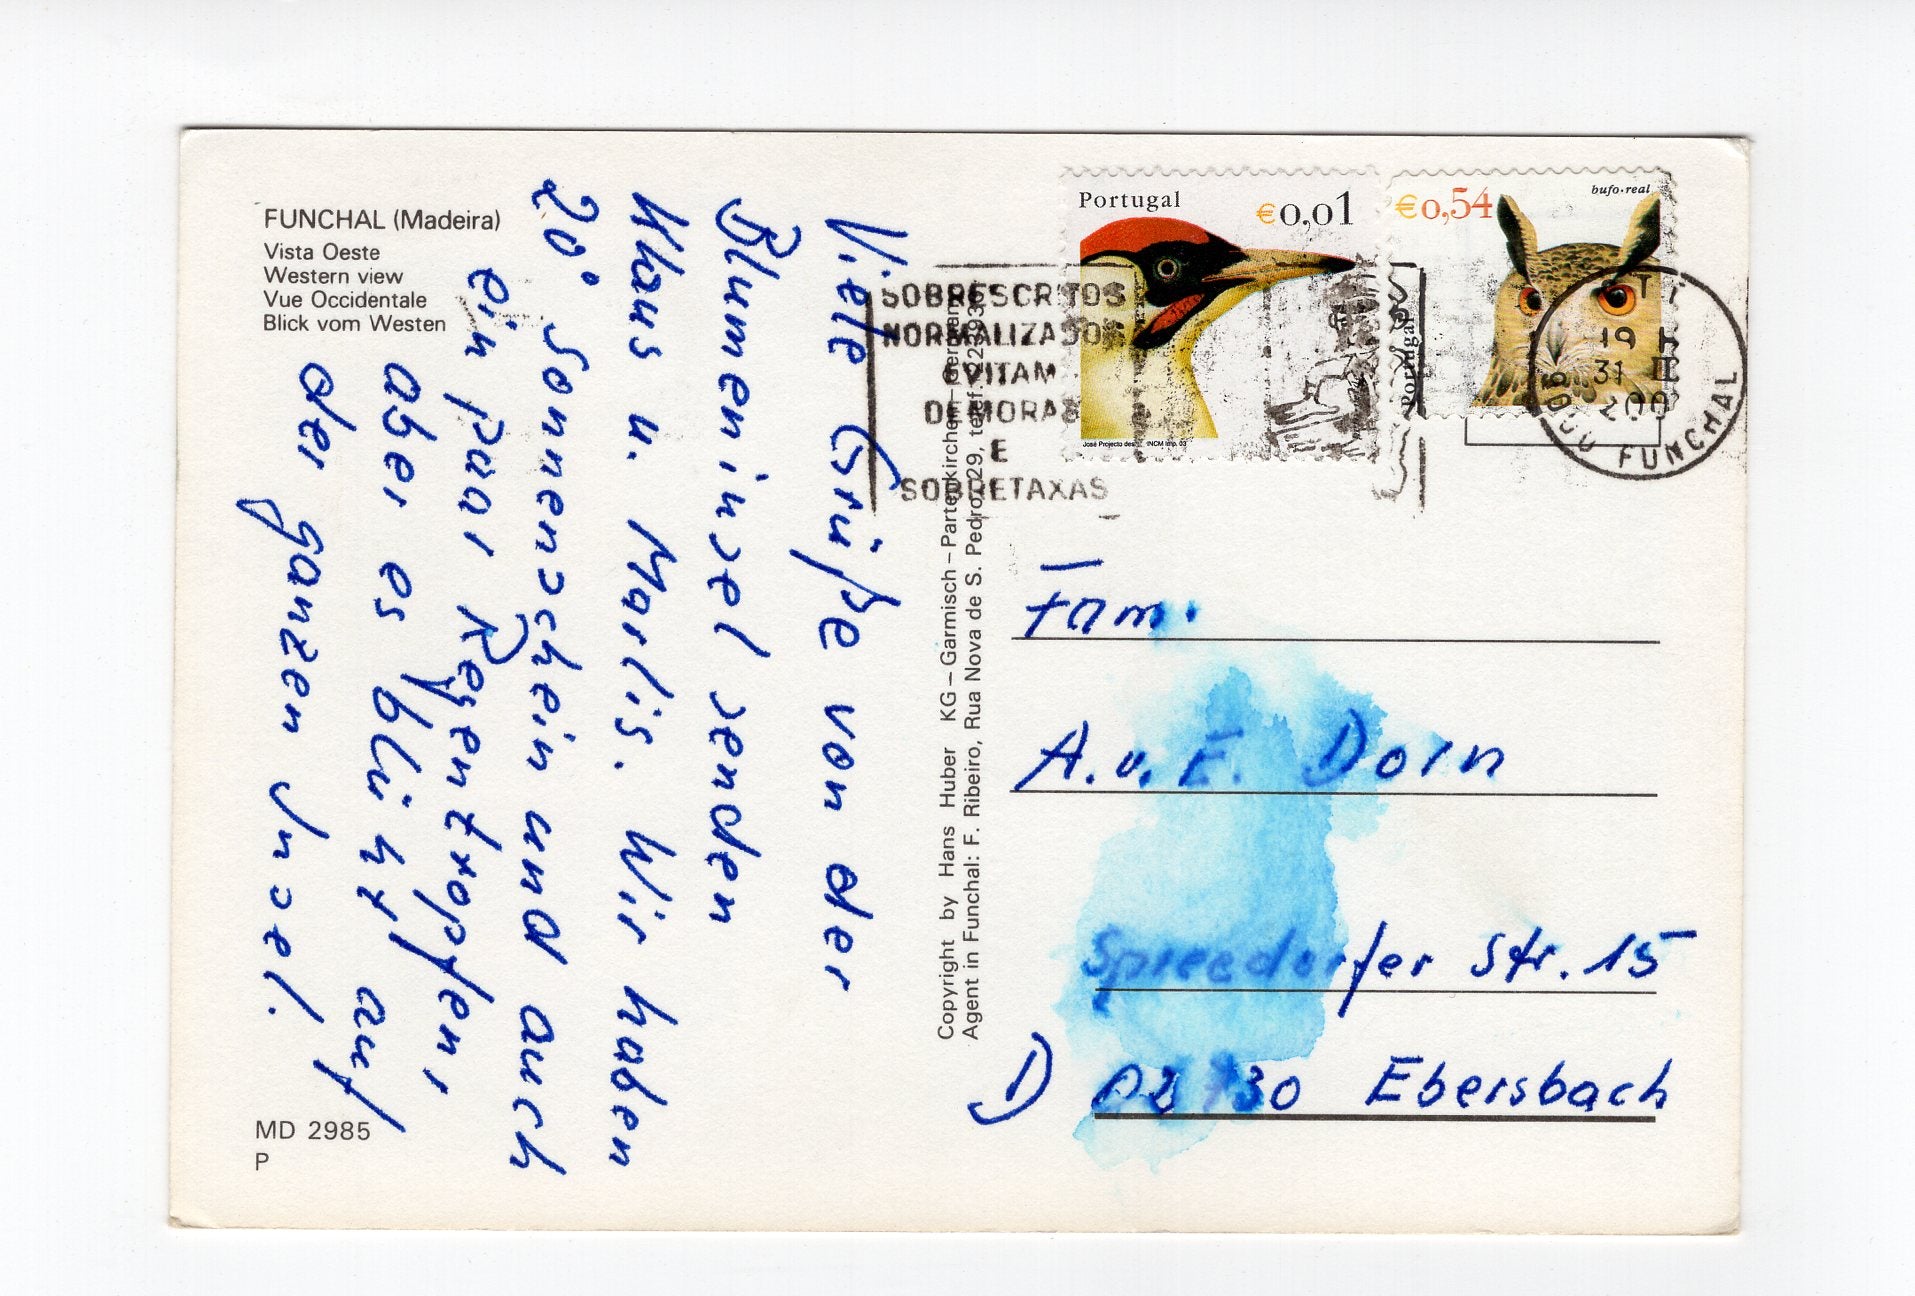 FUNCHAL (Madeira)
Vista Oeste
Western view
Vue Occidentale
Blick vom Westen
Viele Grüße von der
Blumeninsel senden
Klaus u. Marlis. Wir haben
20° Sonnenschein und auch
ein paar Regentropfen,
aber es blüht auf
der ganzen Insel.
MD 2985
P
Copyright by Hans Huber KG – Garmisch – Partenkirchen – Germany
Agent in Funchal: F. Ribeiro, Rua Nova de S. Pedro 29, telef.
Portugal €0,01
José Projecto INCM Imp. 03
€0,54 bufo-real
Portugal
SOBRESCRITOS
NORMALIZADOS
EVITAM
DEMORAS
E
SOBRETAXAS
19 H
31
200
FUNCHAL
Fam.
A. u. F. Dorn
Spreedorfer Str. 15
D 02730 Ebersbach